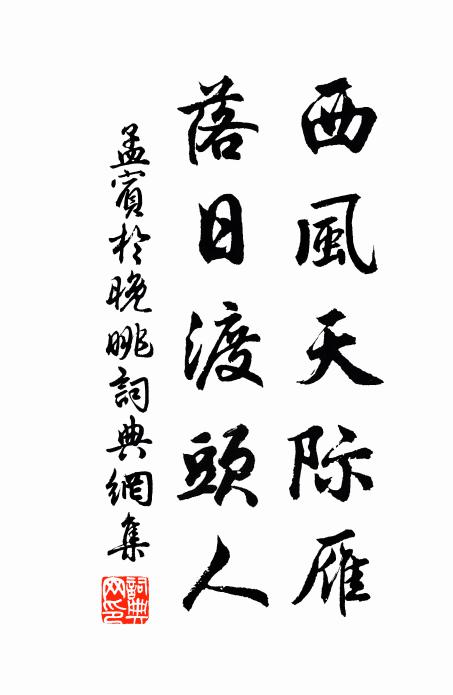 西風天际雁
落日渡頭人
孟賓於晚眺詞典網集
詞典網印